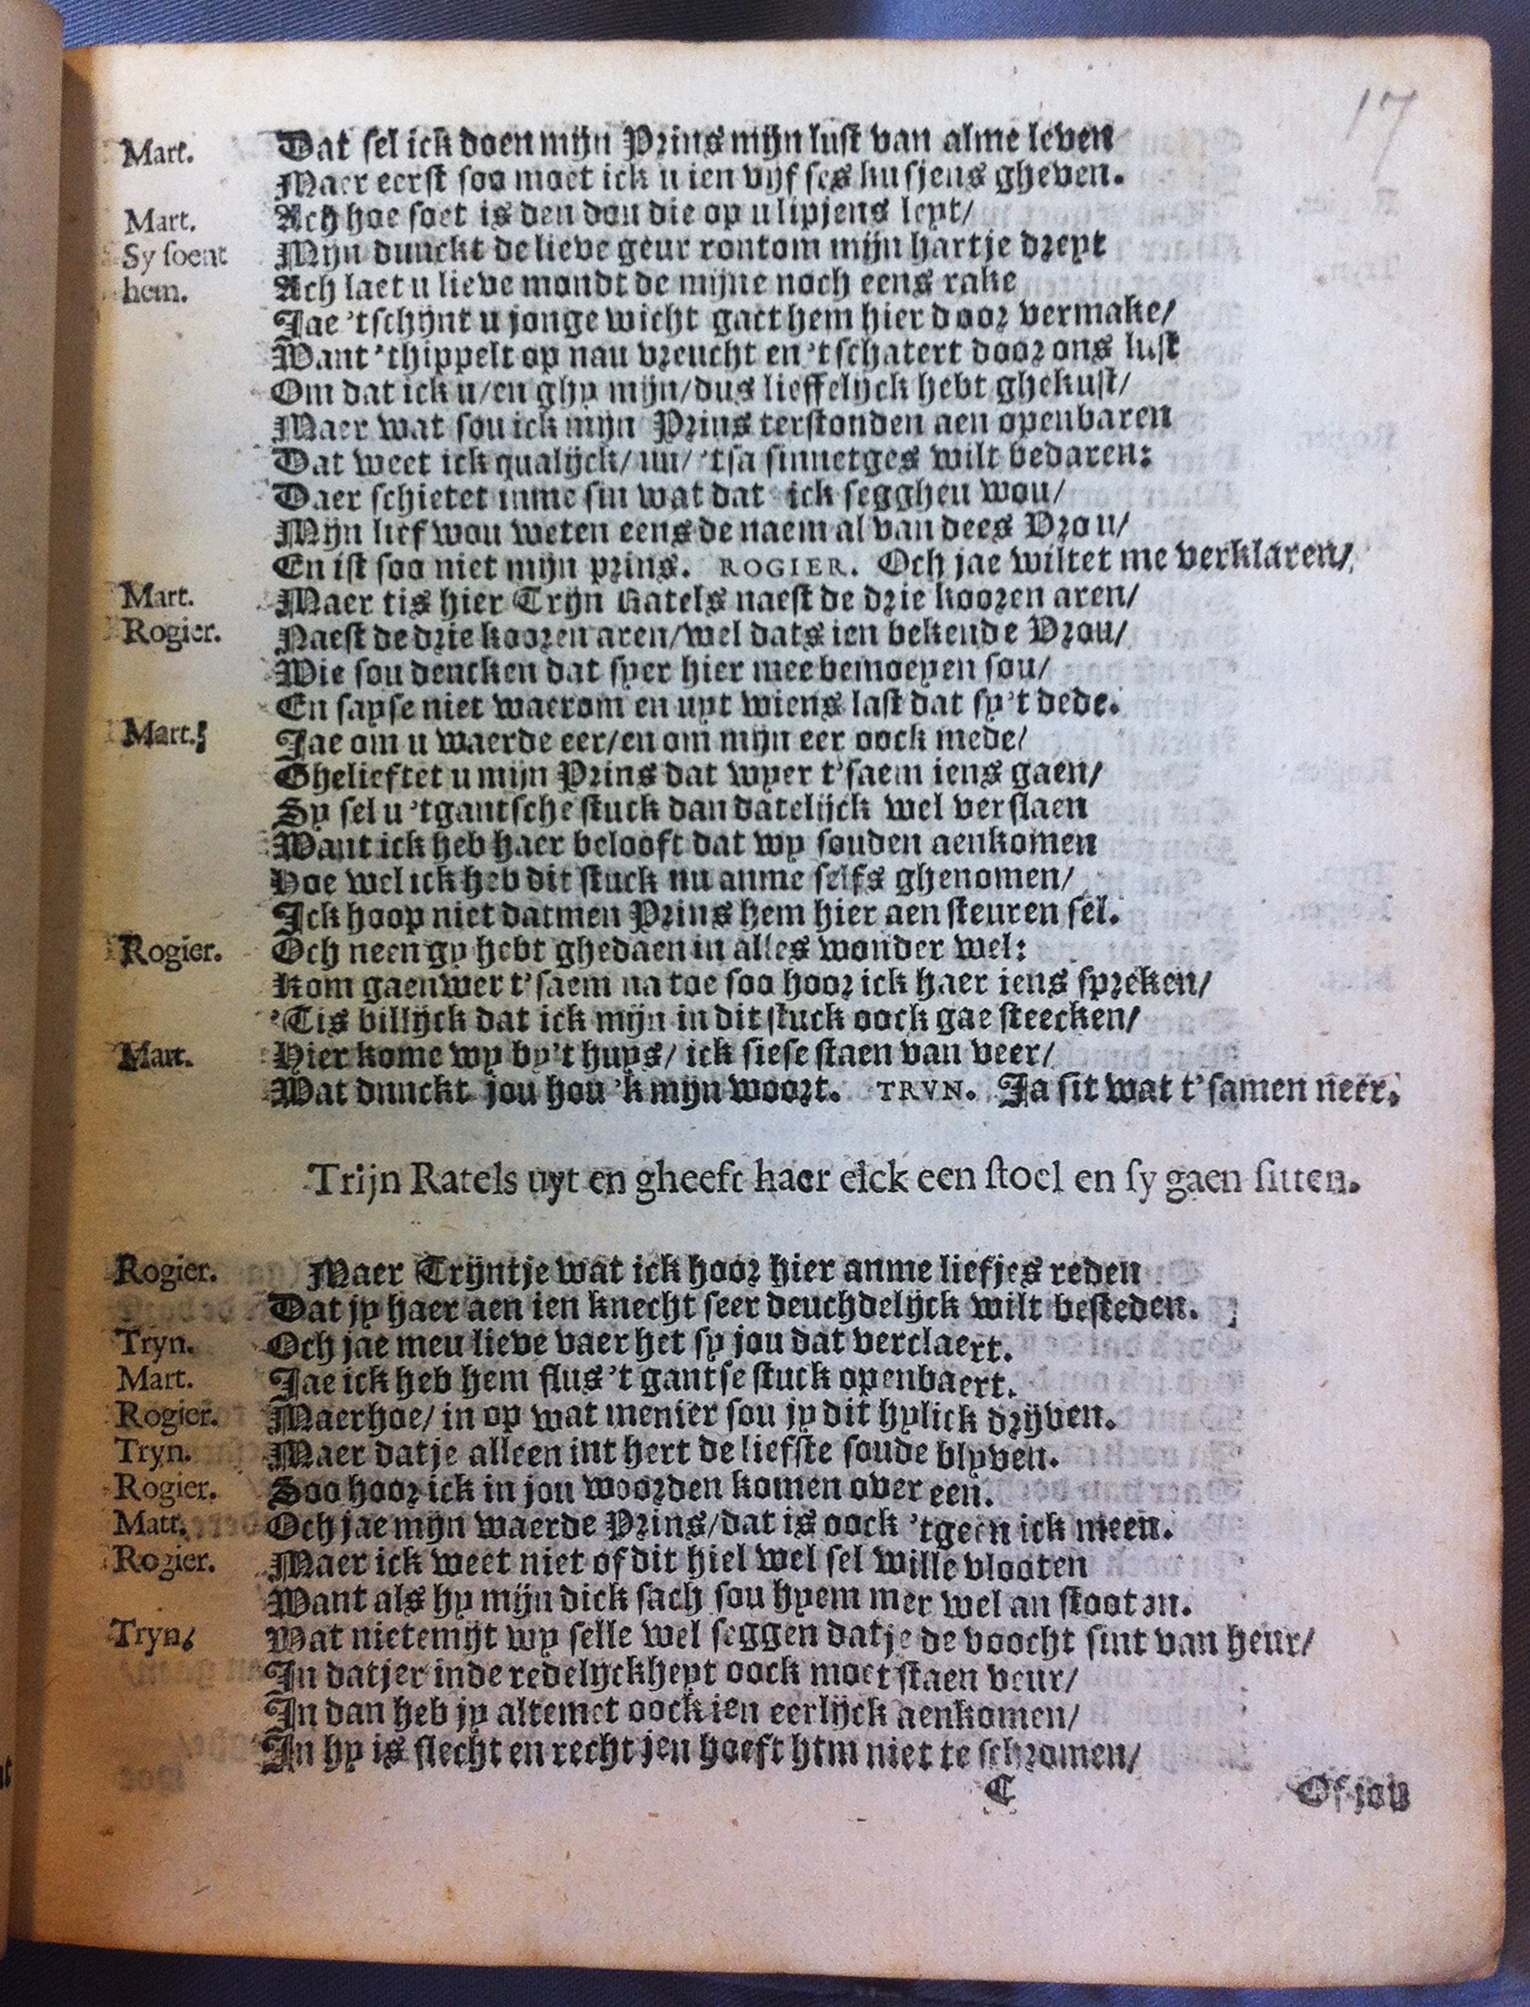 17
Mart. Dat sel ick doen mijn Prins mijn lust van alme leven
Maer eerst soo moet ick u ien vijf ses kusjens gheven.
Mart. Ach hoe soet is den dou die op u lipjens leyt/
Sy soent Mijn dunckt de lieve geur rontom mijn hartje dreyt
hem. Ach laet u lieve mondt de mijne noch eens rake
Jae 'tschijnt u jonge wicht gaet hem hier door vermake/
Want 'thippelt op nau vreucht en 'tschatert door ons lust
Om dat ick u/en ghy mijn/dus lieffelijck hebt ghekust/
Maer wat sou ick mijn Prins terstonden aen openbaren
Dat weet ick qualijck/ nu/ 'tsa sinnetges wilt bedaren:
Daer schietet inme sin wat dat ick segghen wou/
Mijn lief wou weten eens de naem al van dees Vrou/
En ist soo niet mijn prins. ROGIER. Och jae wiltet me verklaren/
Mart. Maer tis hier Trijn Ratels naest de drie kooren aren/
Rogier. Naest de drie kooren aren/wel dats ien bekende Vrou/
Wie sou dencken dat syer hier mee bemoeyen sou/
En sayse niet waerom en uyt wiens last dat sy't dede.
Mart. Jae om u waerde eer/en om mijn eer oock mede/
Ghelieftet u mijn Prins dat wyer t'saem iens gaen/
Sy sel u 'tgantsche stuck dan datelijck wel verslaen
Want ick heb haer belooft dat wy souden aenkomen
Hoe wel ick heb dit stuck nu anme selfs ghenomen/
Ick hoop niet datmen Prins hem hier aen steuren sel.
Rogier. Och neen gy hebt ghedaen in alles wonder wel:
Kom gaenwer t'saem na toe soo hoor ick haer iens spreken/
'Tis billijck dat ick mijn in dit stuck oock gae steecken/
Mart. Hier kome wy by't huys/ ick siese staen van veer/
Wat dunckt jou hou 'k mijn woort. TRYN. Ja sit wat t'samen neer.
Trijn Ratels uyt en gheeft haer elck een stoel en sy gaen sitten.
Rogier. Maer Trijntje wat ick hoor hier anme liefjes reden
Dat jy haer aen ien knecht seer deuchdelijck wilt besteden.
Tryn. Och jae meu lieve vaer het sy jou dat verclaert.
Mart. Jae ick heb hem flus 't gantse stuck openbaert.
Rogier. Maerhoe/ in op wat menier sou jy dit hylick drijven.
Tryn. Maer datje alleen int hert de liefste soude blyven.
Rogier. Soo hoor ick in jou woorden komen over een.
Mart. Och jae mijn waerde Prins/dat is oock 'tgeen ick meen.
Rogier. Maer ick weet niet of dit hiel wel sel wille vlooten
Want als hy mijn dick sach sou hyem mer wel an stooten.
Tryn. Wat nietemijt wy selle wel seggen datje de voocht sint van heur/
In datjer inde redelyckheyt oock moet staen veur/
In dan heb jy altemet oock ien eerlijck aenkomen/
In hy is slecht en recht jen hoeft hem niet te schromen/
C Of jou